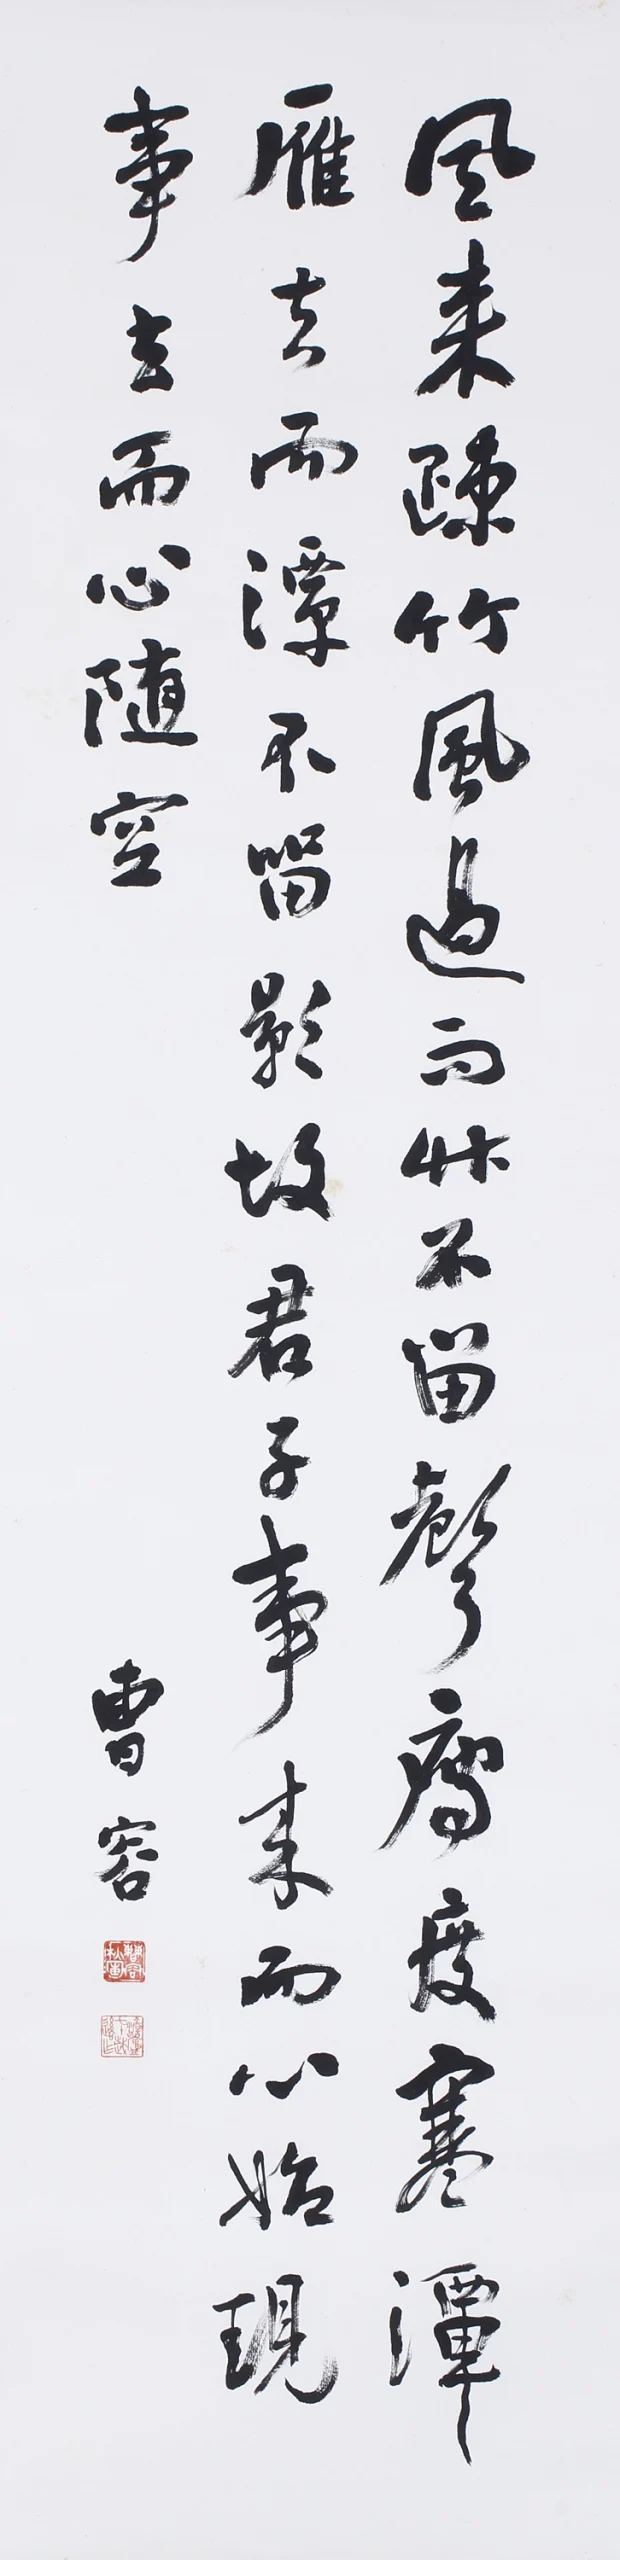 風来疎竹風過而竹不留聲雁度寒潭
雁去而潭不留影故君子事来而心始現
事去而心随空
曹容